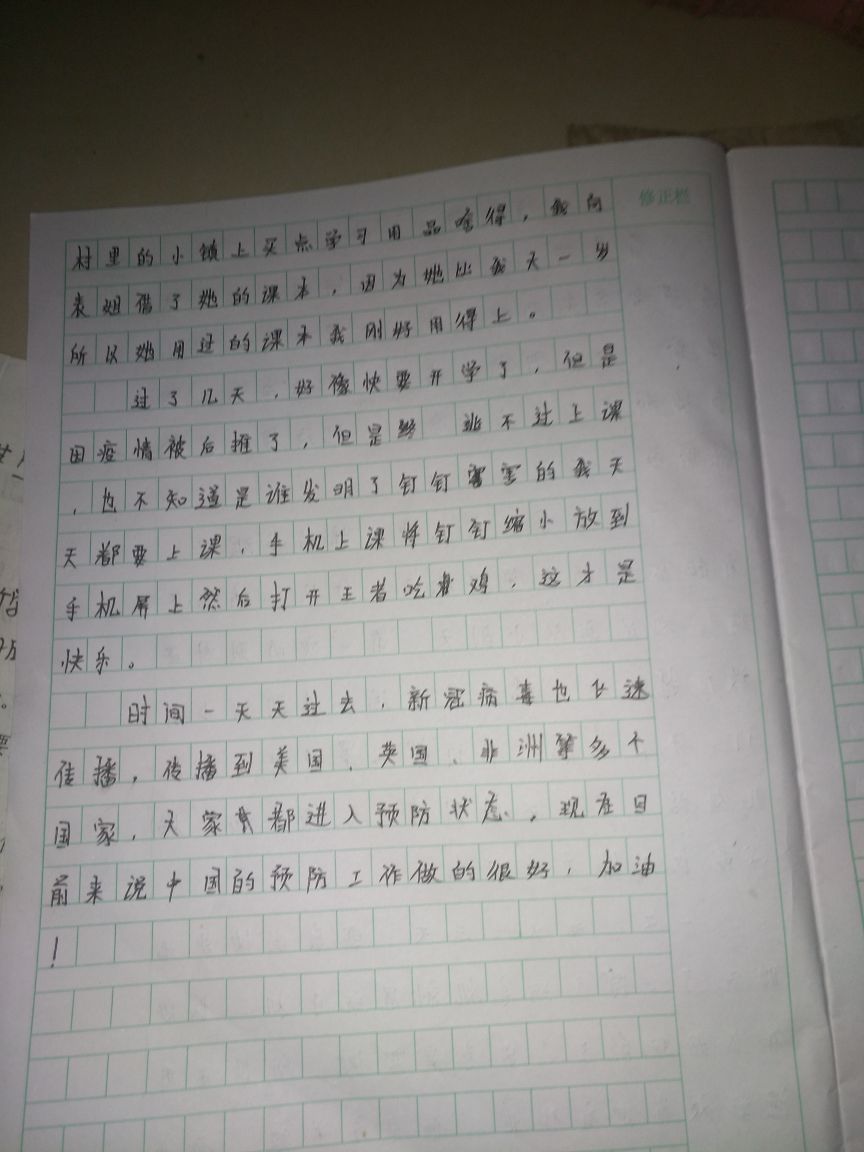 修正栏
村里的小镇上买点学习用品啥得，我向
表姐借了她的课本，因为她比我大一岁
所以她用过的课本我刚好用得上。
过了几天，好像快要开学了，但是
因疫情被后推了，但是 逃不过上课
，也不知道是谁发明了钉钉 害的我天
天都要上课，手机上课将钉钉缩小放到
手机屏上然后打开王者吃鸡，这才是
快乐。
时间一天天过去，新冠病毒也飞速
传播，传播到美国、英国、非洲等多个
国家，大家都进入预防状态，现在目
前来说中国的预防工作做的很好，加油
！